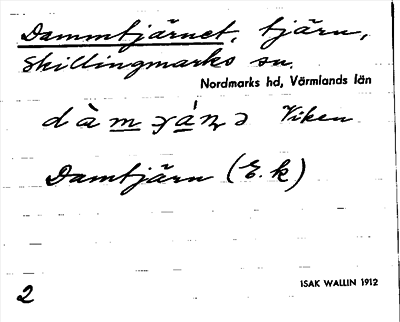 Dammtjärnet, tjärn,
Skillingmarks sn.
Nordmarks hd, Värmlands län
Viken
Damtjärn (E.k)
ISAK WALLIN 1912
2